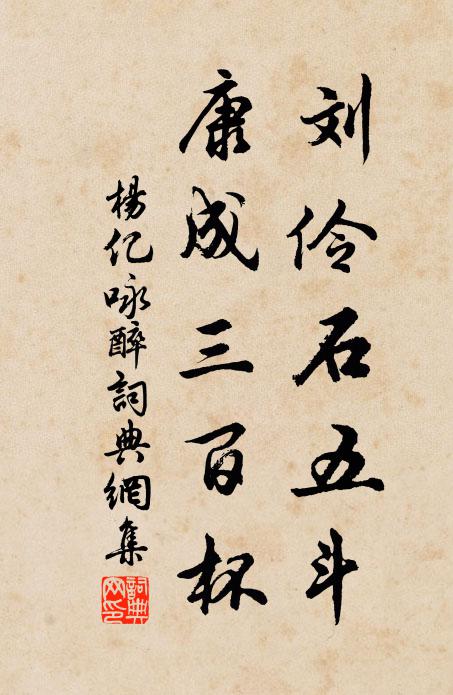 刘伶石五斗
康成三百杯
杨亿咏醉詞典網集
詞典网印